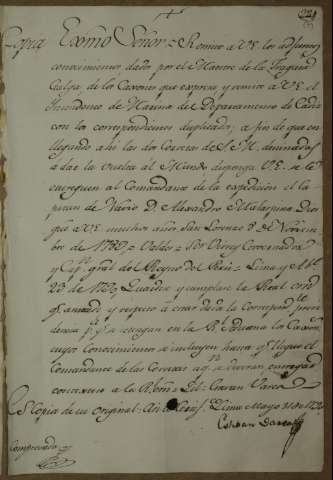 Copia Exmo Señor = Remito a V.E. los adjuntos
conocimientos dados por el Maestre de la Fragata
Galga, de los Caxones que expresa y remite a V.E. el
Intendente de Marina del Departamento de Cadiz
con los correspondientes duplicados, a fin de que en
llegando ahi las dos Corvetas de S.M. destinadas
a dar la vuelta al Mundo disponga V.E. se le
entreguen al Comandante de la expedicion el Ca-
pitan de Navio D. Alexandro Malaspina. Dios
gue a V.E. muchos años San Lorenzo 8 de Noviem-
bre de 1789 = Valdes = Sor Virrey Governador
y Capn gral del Reyno del Peru = Lima y
23 de Guardese y cumplase la Real orn
y respecto a estar dada la correspte provi-
dencia pa q se tengan en la Rl los Caxones
cuyos Conocimientos se incluyen hasta q llegue el
Comandante de las Corvetas a qn se devran entregar
contextese a la Rl orn =
Es Copia de su original Lima Mayo 31 de 1790
Comprovada